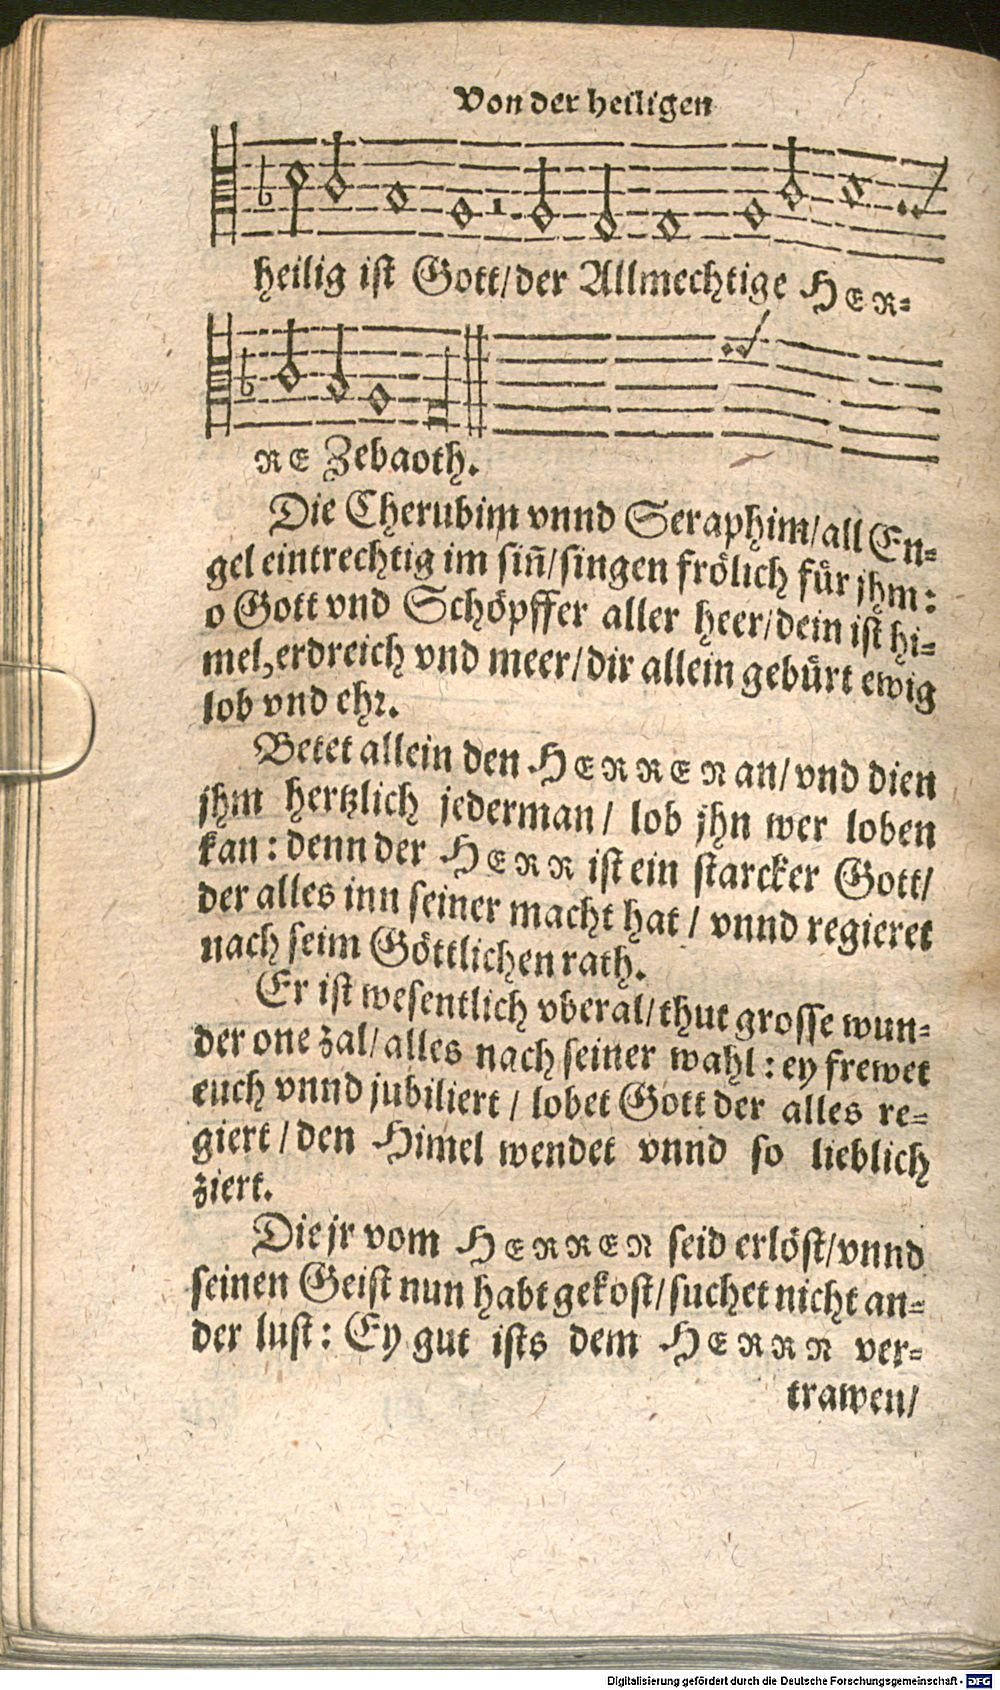 Von der heiligen
heilig ist Gott/der Allmechtige HER-
RE Zebaoth.
Die Cherubim vnnd Seraphim/all En-
gel eintrechtig im sin̄/singen frölich für jhm:
o Gott vnd Schöpffer aller heer/dein ist hi-
mel,erdreich vnd meer/dir allein gebürt ewig
lob vnd ehr.
Betet allein den HERREN an/vnd dien
jhm hertzlich jederman/ lob jhn wer loben
kan: denn der HERR ist ein starcker Gott/
der alles inn seiner macht hat/ vnnd regieret
nach seim Göttlichen rath.
Er ist wesentlich vberal/thut grosse wun-
der one zal/alles nach seiner wahl: ey frewet
euch vnnd jubiliert/ lobet Gott der alles re-
giert/den Himel wendet vnnd so lieblich
ziert.
Die jr vom HERREN seid erlöst/vnnd
seinen Geist nun habt gekost/suchet nicht an-
der lust: Ey gut ists dem HERRN ver-
trawen/
Digitalisierung gefördert durch die Deutsche Forschungsgemeinschaft - DFG